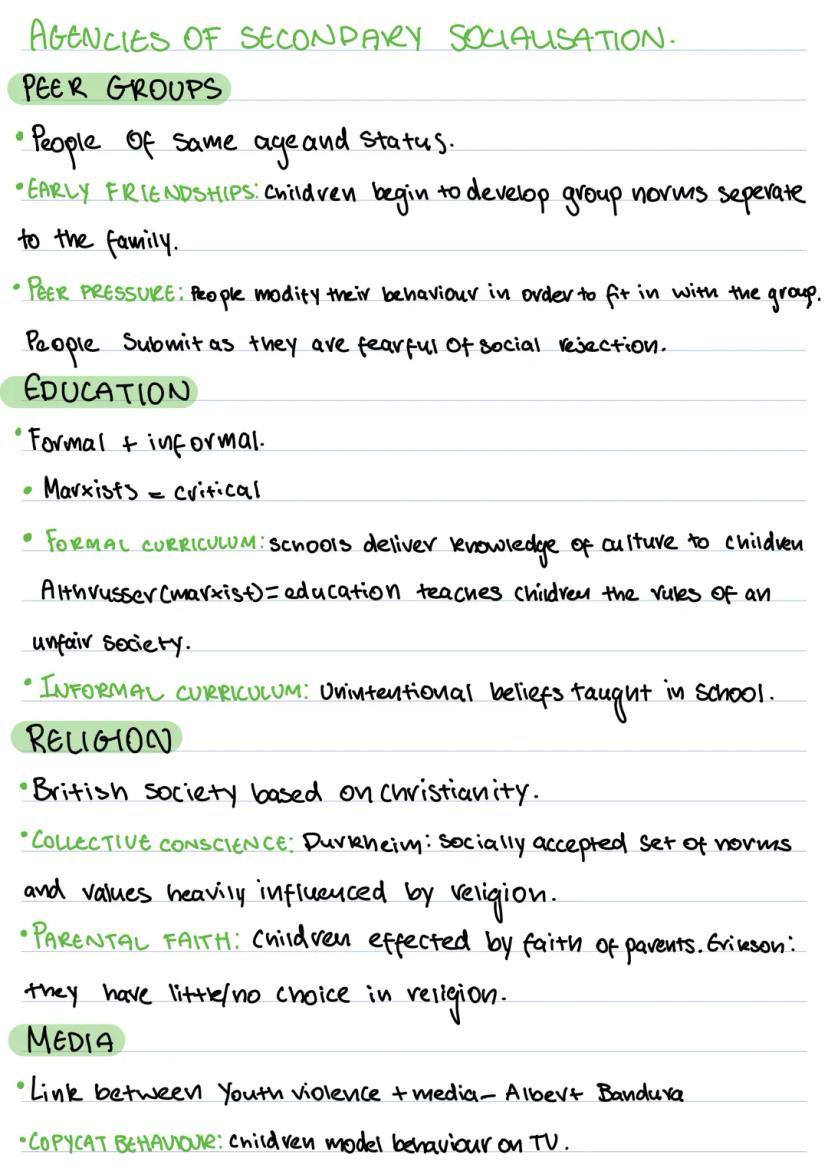 AGENCIES OF SECONDARY SOCIALISATION.
PEER GROUPS
• People of same age and status.
• EARLY FRIENDSHIPS: Children begin to develop group norms seperate
to the family.
• PEER PRESSURE: People modify their behaviour in order to fit in with the group.
People submit as they are fearful of social rejection.
EDUCATION
• Formal + informal.
• Marxists = critical
• FORMAL CURRICULUM: schools deliver knowledge of culture to children
Althrusser (marxist) = education teaches children the rules of an
unfair society.
• INFORMAL CURRICULUM: Unintentional beliefs taught in school.
RELIGION
• British society based on Christianity.
• COLLECTIVE CONSCIENCE: Durkheim: socially accepted set of norms
and values heavily influenced by religion.
• PARENTAL FAITH: Children effected by faith of parents. Erikson:
they have little/no choice in religion.
MEDIA
• Link between Youth violence + media - Albert Bandura
• COPYCAT BEHAVIOUR: Children model behaviour on TV.